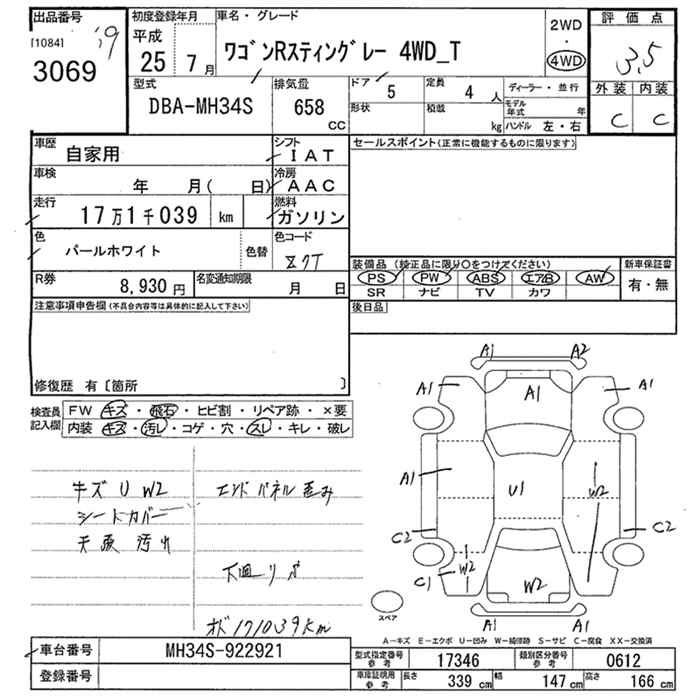 出品番号
[1084]
19
3069
初度登録年月
平成
25
7月
車名・グレード
ワゴンRスティングレー 4WD_T
2WD
・
4WD
評価点
3.5
外装 内装
C C
型式
DBA-MH34S
排気量
658
CC
ドア
5
定員
4 人
形状
積載
kg
ディーラー・並行
モデル年式 年
ハンドル 左・右
車歴
自家用
シフト
IAT
車検
年 月( 日)
冷房
AAC
走行
17万1千039 km
燃料
ガソリン
色
パールホワイト
色替
色コード
Z7T
R券
8,930 円
名変通知期限
月 日
セールスポイント(正常に機能するものに限ります)
装備品 (純正品に限り○をつけてください)
PS PW ABS エアB AW
SR ナビ TV カワ
新車保証書
有・無
後日品
注意事項申告欄(不具合内容等は具体的に記入して下さい)
修復歴 有〔箇所 〕
検査員記入欄
FW キズ・飛石・ヒビ割・リペア跡・×要
内装 キズ・汚レ・コゲ・穴・スレ・キレ・破レ
キズ U W2
シートカバー
天張 汚れ
エンドパネル歪み
下廻リサビ
オド171039km
A1 A2
A1 A1 A1
A1 U1 W2
C2 C2
C1 W2 W2
A1 A1
スペア
A-キズ E-エクボ U-凹み W-補修跡 S-サビ C-腐食 XX-交換済
車台番号
MH34S-922921
登録番号
型式指定番号 参考
17346
類別区分番号 参考
0612
車庫証明用 参考
長さ 339 cm
幅 147 cm
高さ 166 cm